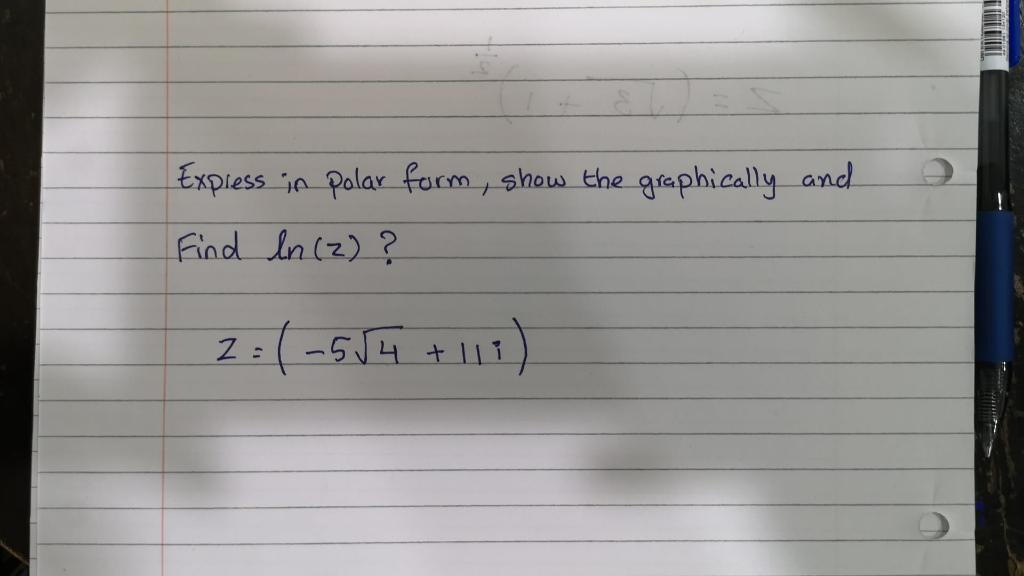 Express in polar form, show the graphically and
Find ln(z) ?
Z = ( -5√4 + 11i )